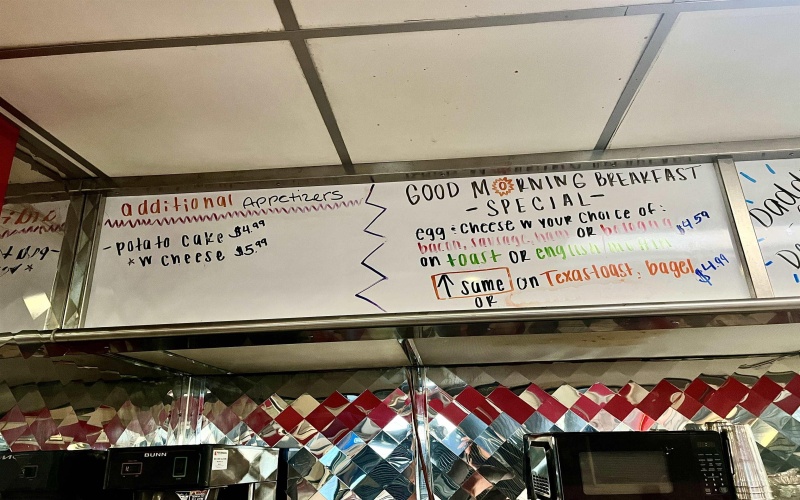 additional Appetizers
-potato cake $4.99
*w cheese $5.99
GOOD MORNING BREAKFAST
-SPECIAL-
egg & cheese w your choice of:
bacon, sausage, ham or bologna $4.59
on toast OR english muffin
↑ same on Texas toast, bagel $4.99
OR
Daddy
BUNN